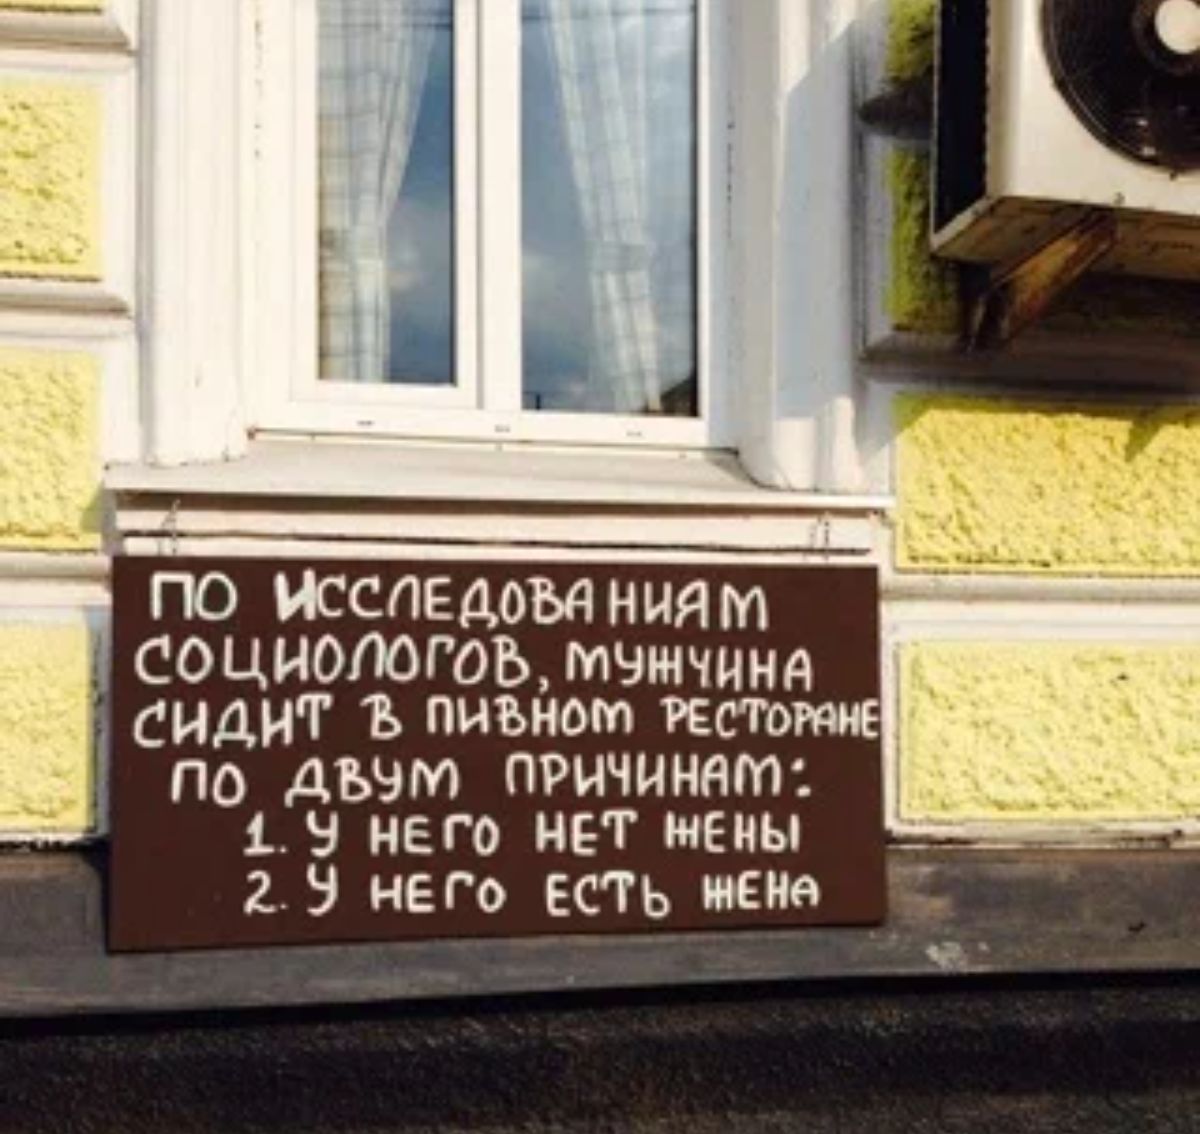 ПО ИССЛЕДОВАНИЯМ
СОЦИОЛОГОВ, МУЖЧИНА
СИДИТ В ПИВНОМ РЕСТОРАНЕ
ПО ДВУМ ПРИЧИНАМ:
1. У НЕГО НЕТ ЖЕНЫ
2. У НЕГО ЕСТЬ ЖЕНА